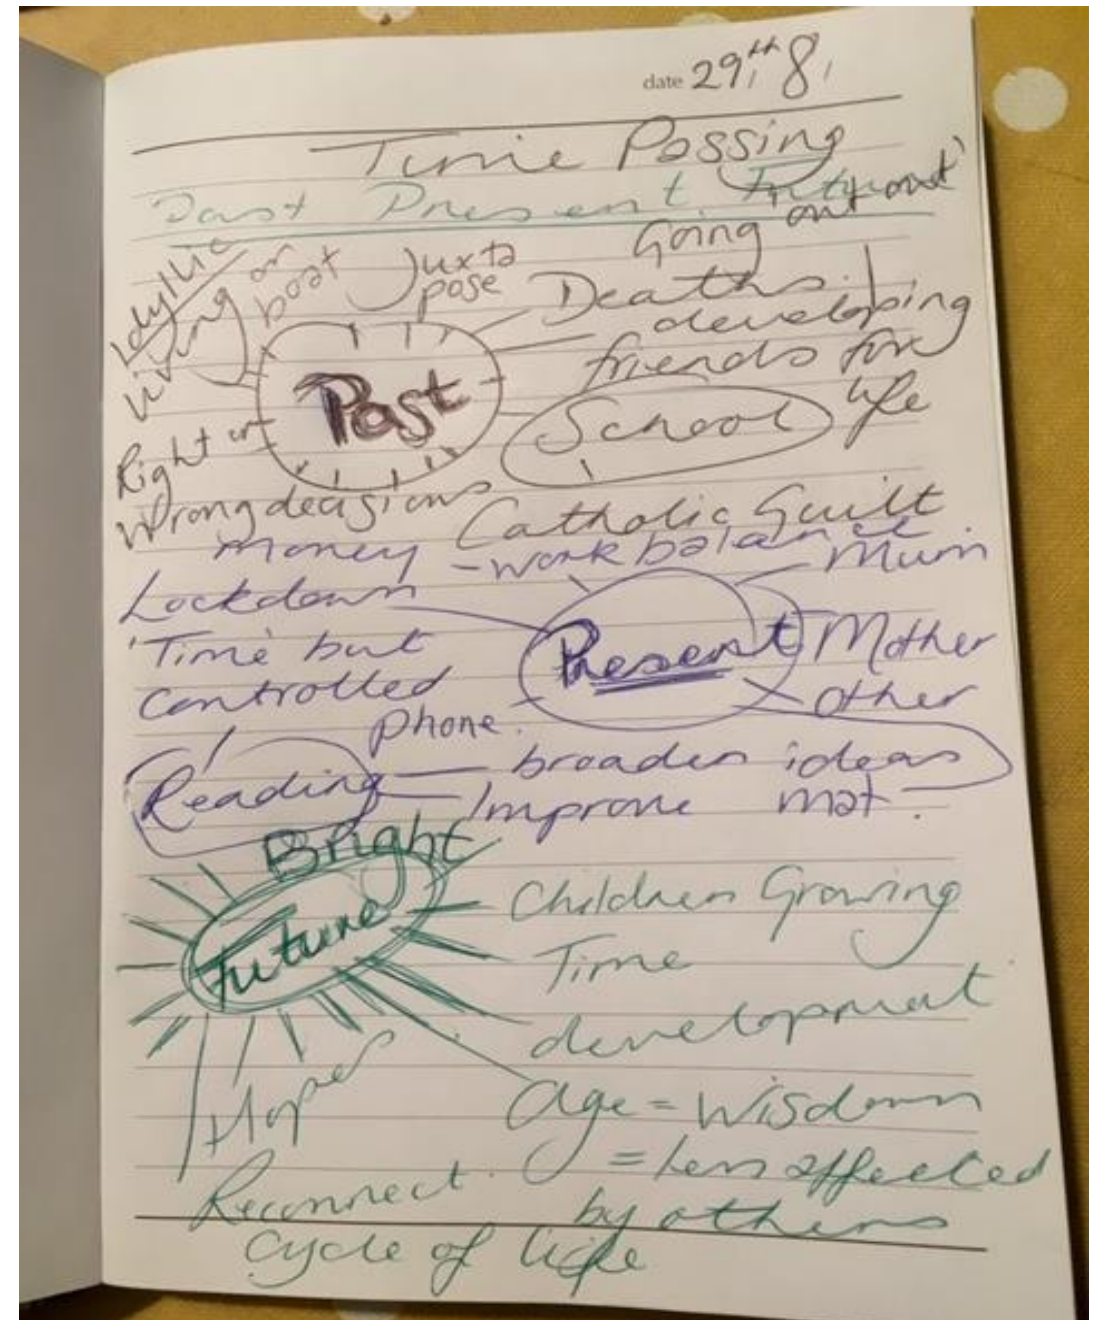 date 29th 8
Time Passing
Past Present Future
Going 'out out'
Idyllic
living on boat
Juxta
pose
Deaths
developing
friends for
life
Past
School
Right or
Wrong decisions
Catholic Guilt
Money
- work balance
Mum
Lockdown
'Time' but
controlled
Present
Mother
other
phone.
Reading
broaden ideas
Improve
Bright
Future
Children Growing
Time
development
Hope
Age = Wisdom
= less affected
by others
Reconnect.
Cycle of life